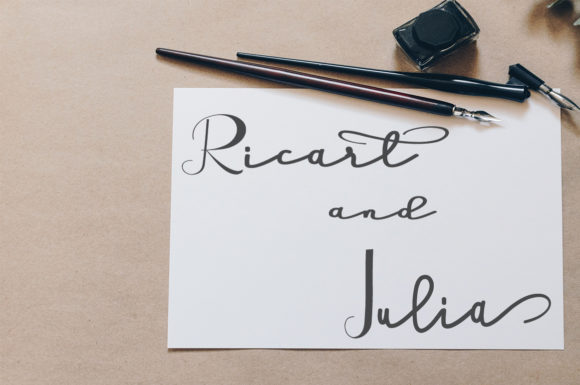 Ricart
and
Julia